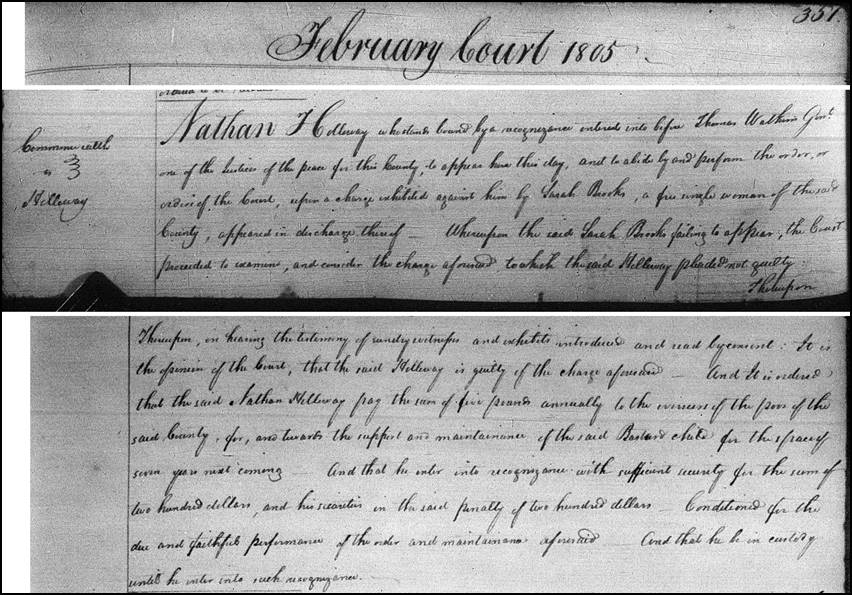 351.
February Court 1805
Commonwealth
vs
Holloway
Nathan Holloway who stands bound by a recognizance entered into before Thomas Watkins Gent.
one of the Justices of the peace for this County, to appear here this day, and to abide by and perform the order, or
orders of the Court, upon a charge exhibited against him by Sarah Brooks, a free single woman of the said
County, appeared in discharge thereof — Whereupon the said Sarah Brooks failing to appear, the Court
proceeded to examine, and consider the charge aforesaid to which the said Holloway pleaded not guilty.
Thereupon
Thereupon, on hearing the testimony of sundry witnesses and exhibits introduced and read by consent. It is
the opinion of the Court, that the said Holloway is guilty of the charge aforesaid — And It is ordered
that the said Nathan Holloway pay the sum of five pounds annually to the overseers of the poor of the
said County, for, and towards the support and maintainance of the said Bastard child for the space of
seven years next coming — And that he enter into recognizance with sufficient security for the sum of
two hundred dollars, and his securities in the said penalty of two hundred dollars — Conditioned for the
due and faithful performance of the order and maintainance aforesaid — And that he be in custody
until he enter into such recognizance.